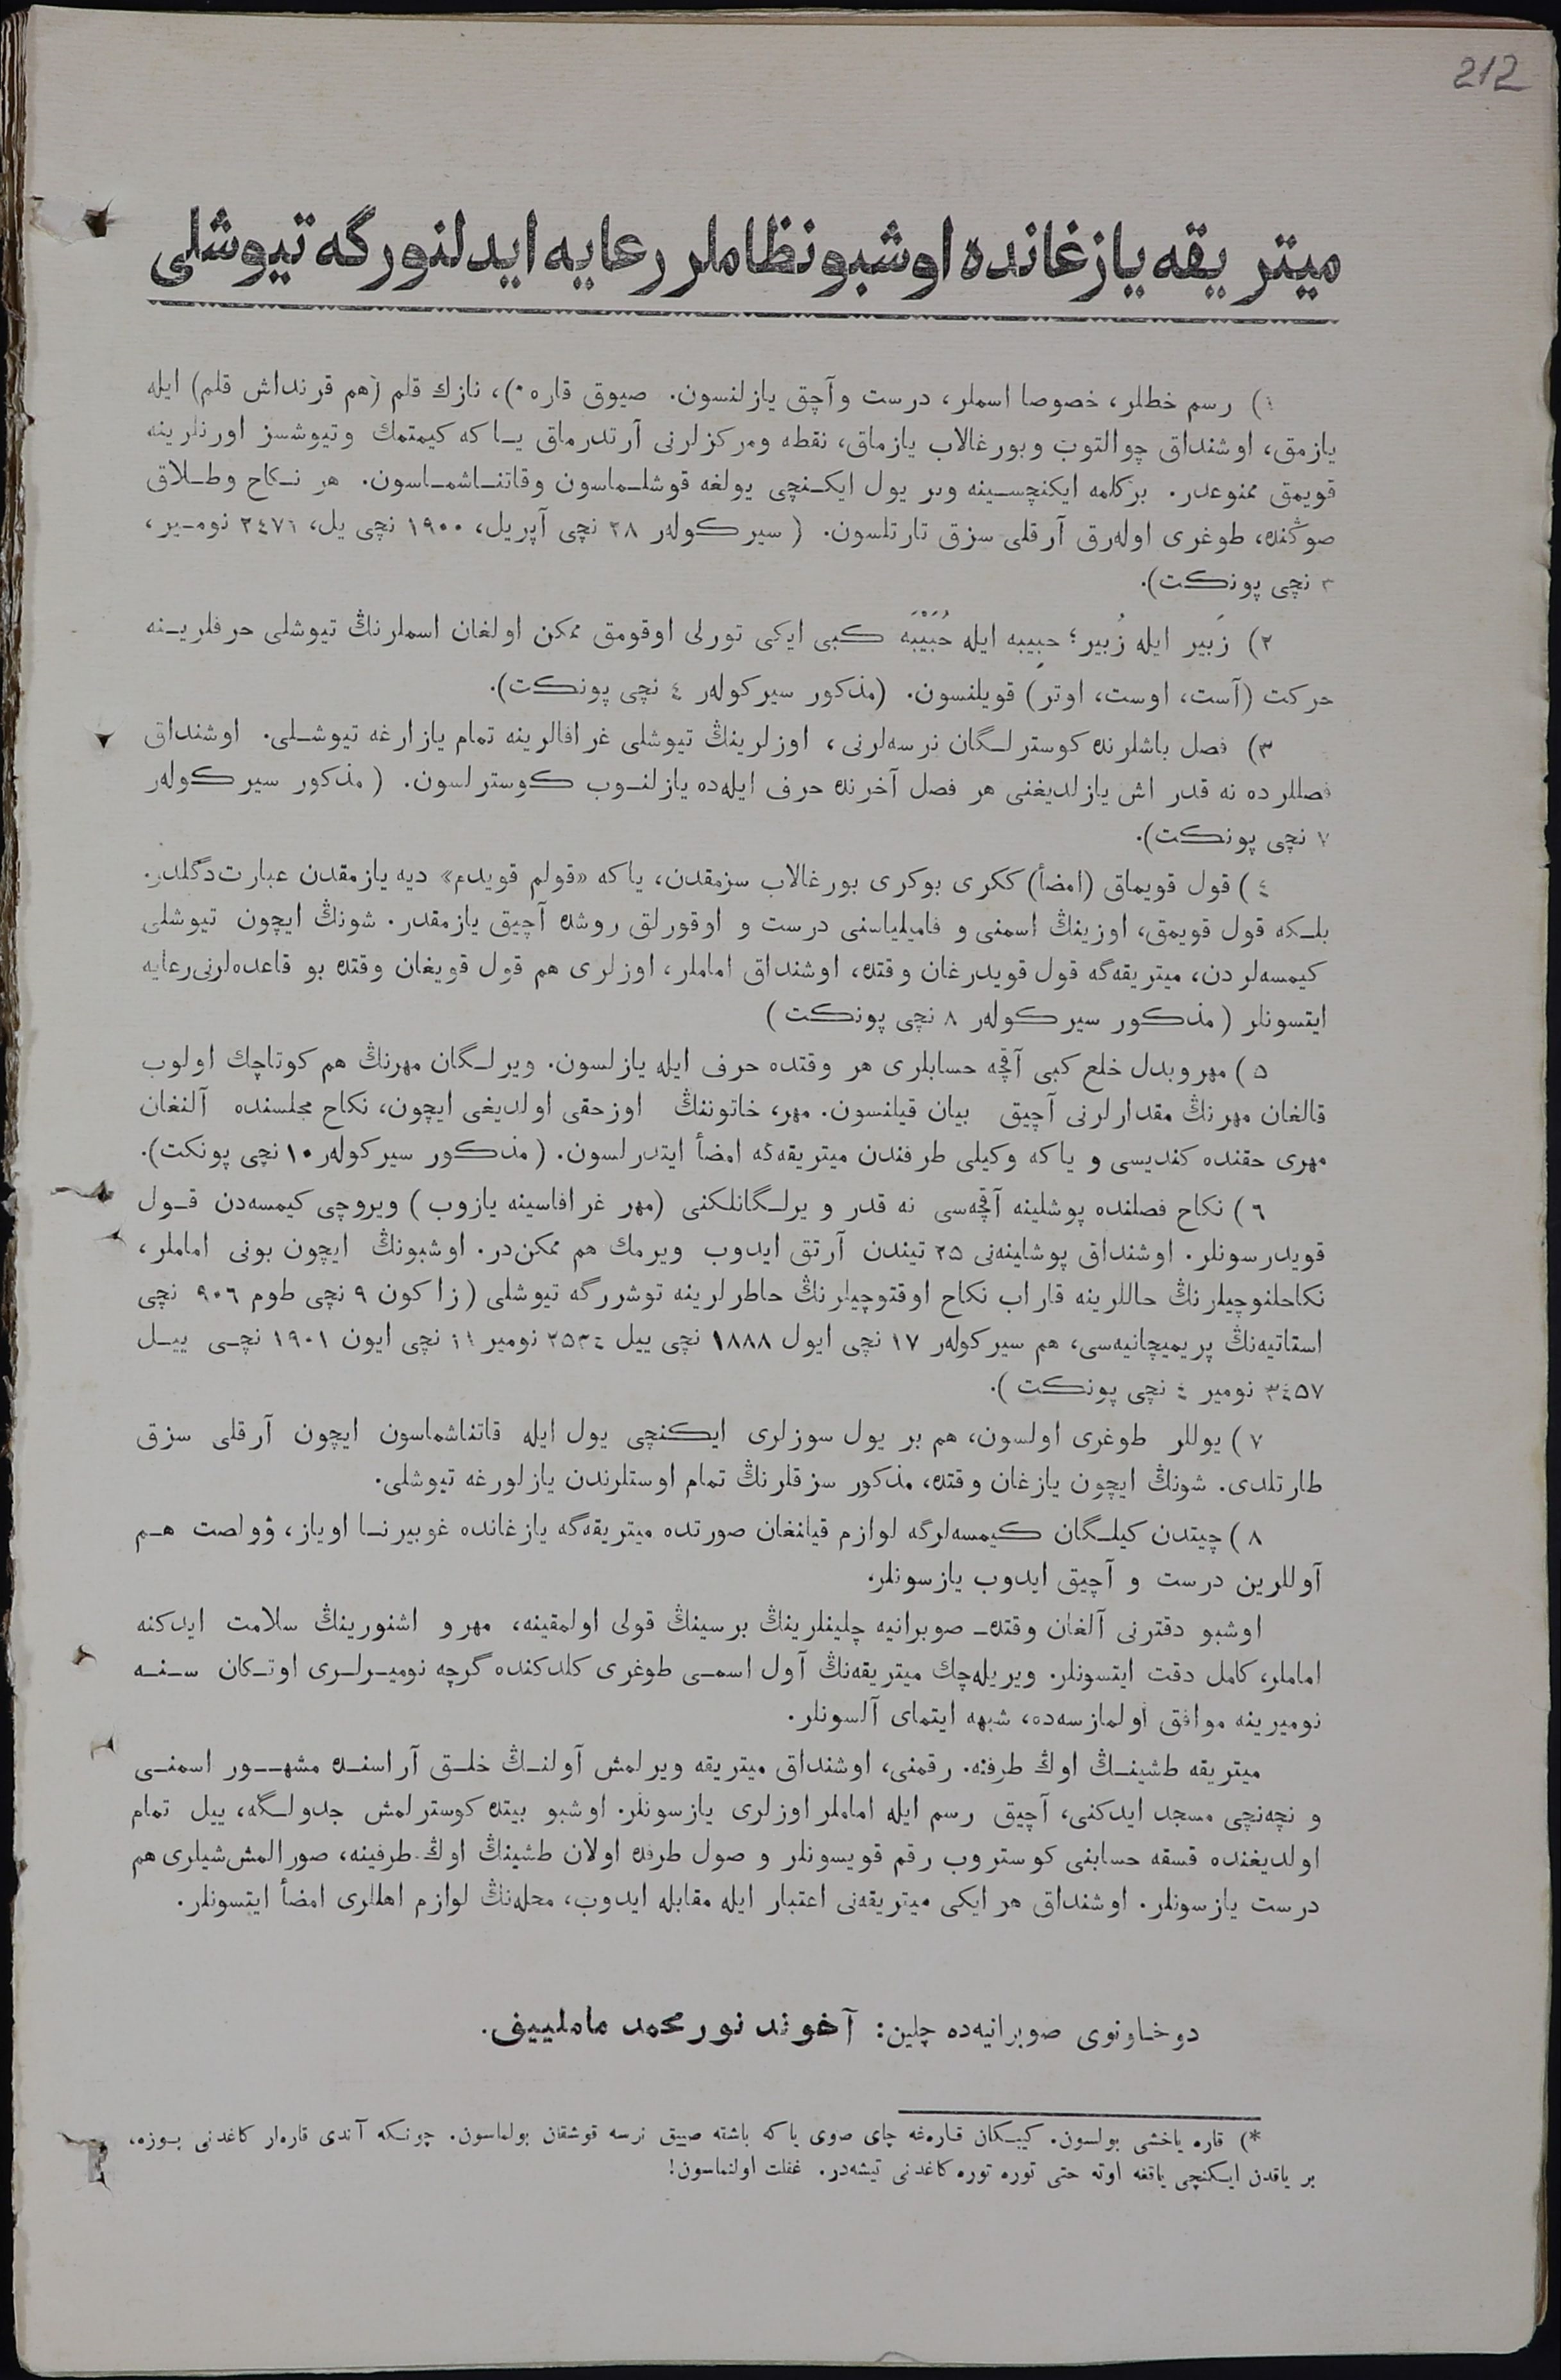 212
ميتريقه يازغانده اوشبو نظاملر رعايه ايدلنورگه تيوشلى
١) رسم خطلر، خصوصا اسملر، درست وآچق يازلنسون. صيوق قاره *)، نازك قلم (هم قرنداش قلم) ايله
يازمق، اوشنداق چوالتوب وبورغالاب يازماق، نقطه ومركزلرنى آرتدرماق يــاكه كيمتمك وتيوشسز اورنلرينه
قويمق ممنوعدر. بركلمه ايكنچســينه وبر يول ايكــنچى يولغه قوشلــماسون وقاتنــاشمــاسون. هر نــكاح وطــلاق
صوڭنده، طوغرى اولەرق آرقلى سزق تارتلسون. (سيركولەر ٢٨ نچى آپريل، ١٩٠٠ نچى يل، ٢٤٧٦ نومــير،
٣ نچى پونكت).
٢) زَبير ايله زُبير؛ حبِيبه ايله حُبَيْبَه كبى ايكى تورلى اوقومق ممكن اولغان اسملرنڭ تيوشلى حرفلريــنه
حركت (آست، اوست، اوتر) قويلنسون. (مذكور سيركولەر ٤ نچى پونكت).
٣) فصل باشلرنده كوسترلــگان نرسەلرنى، اوزلرينڭ تيوشلى غرافالرينه تمام يازارغه تيوشــلى. اوشنداق
فصللرده نه قدر اش يازلديغنى هر فصل آخرنده حرف ايلەده يازلنــوب كوسترلسون. (مذكور سيركولەر
٧ نچى پونكت).
٤) قول قويماق (امضأ) ككرى بوكرى بورغالاب سزمقدن، ياكه «قولم قويدم» ديه يازمقدن عبارت‌دگلدر.
بلــكه قول قويمق، اوزينڭ اسمنى و فاميلياسنى درست و اوقورلق روشده آچيق يازمقدر. شونڭ ايچون تيوشلى
كيمسەلردن، ميتريقەگه قول قويدرغان وقتده، اوشنداق اماملر، اوزلرى هم قول قويغان وقتده بو قاعدەلرنى‌رعايه
ايتسونلر (مذكور سيركولەر ٨ نچى پونكت)
٥) مهر وبدل خلع كبى آقچه حسابلرى هر وقتده حرف ايله يازلسون. ويرلــگان مهرنڭ هم كوتاچك اولوب
قالغان مهرنڭ مقدارلرنى آچيق بيان قيلنسون. مهر، خاتوننڭ اوزحقى اولديغى ايچون، نكاح مجلسنده آلنغان
مهرى حقنده كنديسى و ياكه وكيلى طرفندن ميتريقەگه امضأ ايتدرلسون. (مذكور سيركولەر ١٠ نچى پونكت).
٦) نكاح فصلنده پوشلينه آقچەسى نه قدر ويرلــگانلكنى (مهر غرافاسينه يازوب) ويروچى كيمسەدن قــول
قويدرسونلر. اوشنداق پوشلينەنى ٢٥ تيندن آرتق ايدوب ويرمك هم ممكن‌در. اوشبونڭ ايچون بونى اماملر،
نكاحلنوچيلرنڭ حاللرينه قاراب نكاح اوقتوچيلرنڭ خاطرلرينه توشررگه تيوشلى (زاكون ٩ نچى طوم ٩٠٦ نچى
استاتيەنڭ پريميچانيەسى، هم سيركولەر ١٧ نچى ايول ١٨٨٨ نچى ييل ٢٥٣٤ نومير ١١ نچى ايون ١٩٠١ نچــى ييــل
٣٤٥٧ نومير ٤ نچى پونكت).
٧) يوللر طوغرى اولسون، هم بر يول سوزلرى ايكنچى يول ايله قاتناشماسون ايچون آرقلى سزق
طارتلدى. شونڭ ايچون يازغان وقتده، مذكور سزقلرنڭ تمام اوستلرندن يازلورغه تيوشلى.
٨) چيتدن كيلــگان كيمسەلرگه لوازم قيلنغان صورتده ميتريقەگه يازغانده غوبيرنــا اوياز، ۋولصت هــم
آوللرين درست و آچيق ايدوب يازسونلر.
اوشبو دفترنى آلغان وقتده صوبرانيه چلينلرينڭ برسينڭ قولى اولمقينه، مهر و اشنورينڭ سلامت ايدكنه
اماملر، كامل دقت ايتسونلر. ويريلەچك ميتريقەنڭ آول اسمــى طوغرى كلدكنده گرچه نوميــرلــرى اوتــكان ســنــه
نوميرينه موافق اولمازسەده، شبهه ايتماى آلسونلر.
ميتريقه طشينــڭ اوڭ طرفنه. رقمنى، اوشنداق ميتريقه ويرلمش آولنــڭ خلــق آراسنــده مشهــور اسمنــى
و نچەنچى مسجد ايدكنى، آچيق رسم ايله اماملر اوزلرى يازسونلر. اوشبو بيتده كوسترلمش جدولــگه، ييل تمام
اولديغنده قسقه حسابنى كوستروب رقم قويسونلر و صول طرفده اولان طشينڭ اوڭ طرفينه، صورالمش‌شيلرى هم
درست يازسونلر. اوشنداق هر ايكى ميتريقەنى اعتبار ايله مقابله ايدوب، محلەنڭ لوازم اهللرى امضأ ايتسونلر.
دوخاونوى صوبرانيەده چلين: آخوند نورمحمد ماملييف.
*) قاره ياخشى بولسون. كيبــكان قارەغه چاى صوى ياكه باشته صييق نرسه قوشقان بولماسون. چونــكه آندى قارەلر كاغدنى بــوزه،
بر ياقدن ايــكنچى ياقغه اوته حتى توره توره كاغدنى تيشەدر. غفلت اولنماسون!